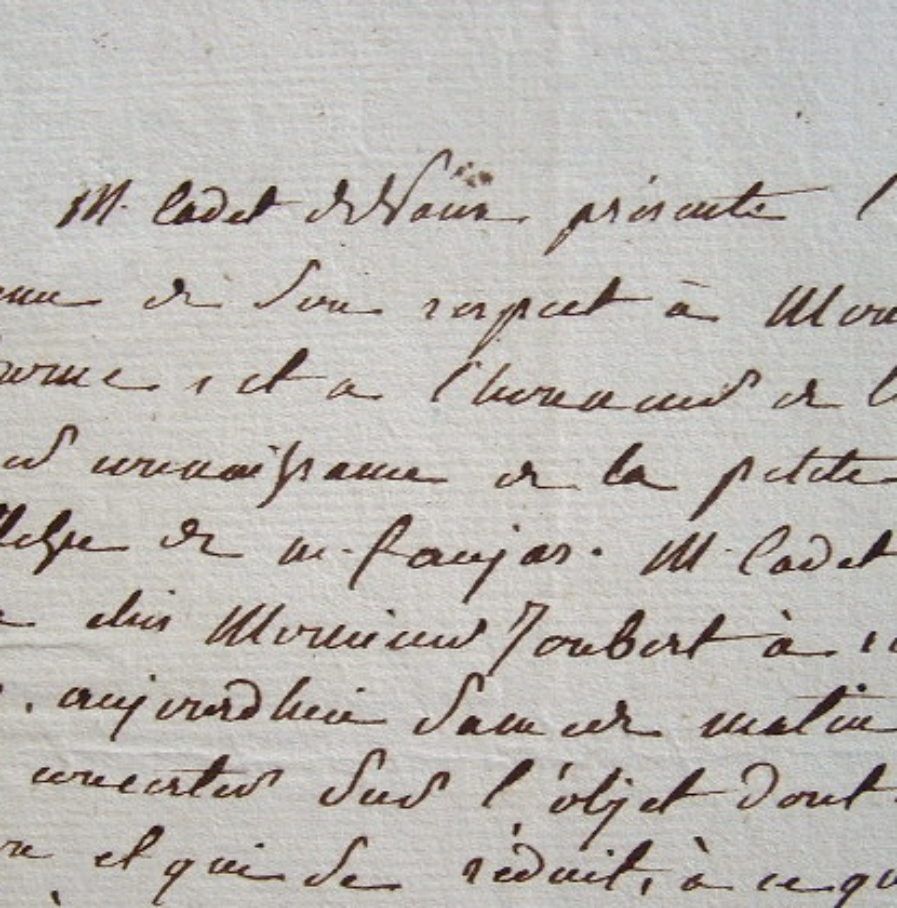 M. Cadet de Vaux présente l
de son respect à Mon
et a l'honneur de l
connaissance de la petite
de m. Faujas. M. Cadet
chés Monsieur Joubert à
aujourdhui samedi matin
concerter sur l'objet dont
et qui se réduit, à ce qu